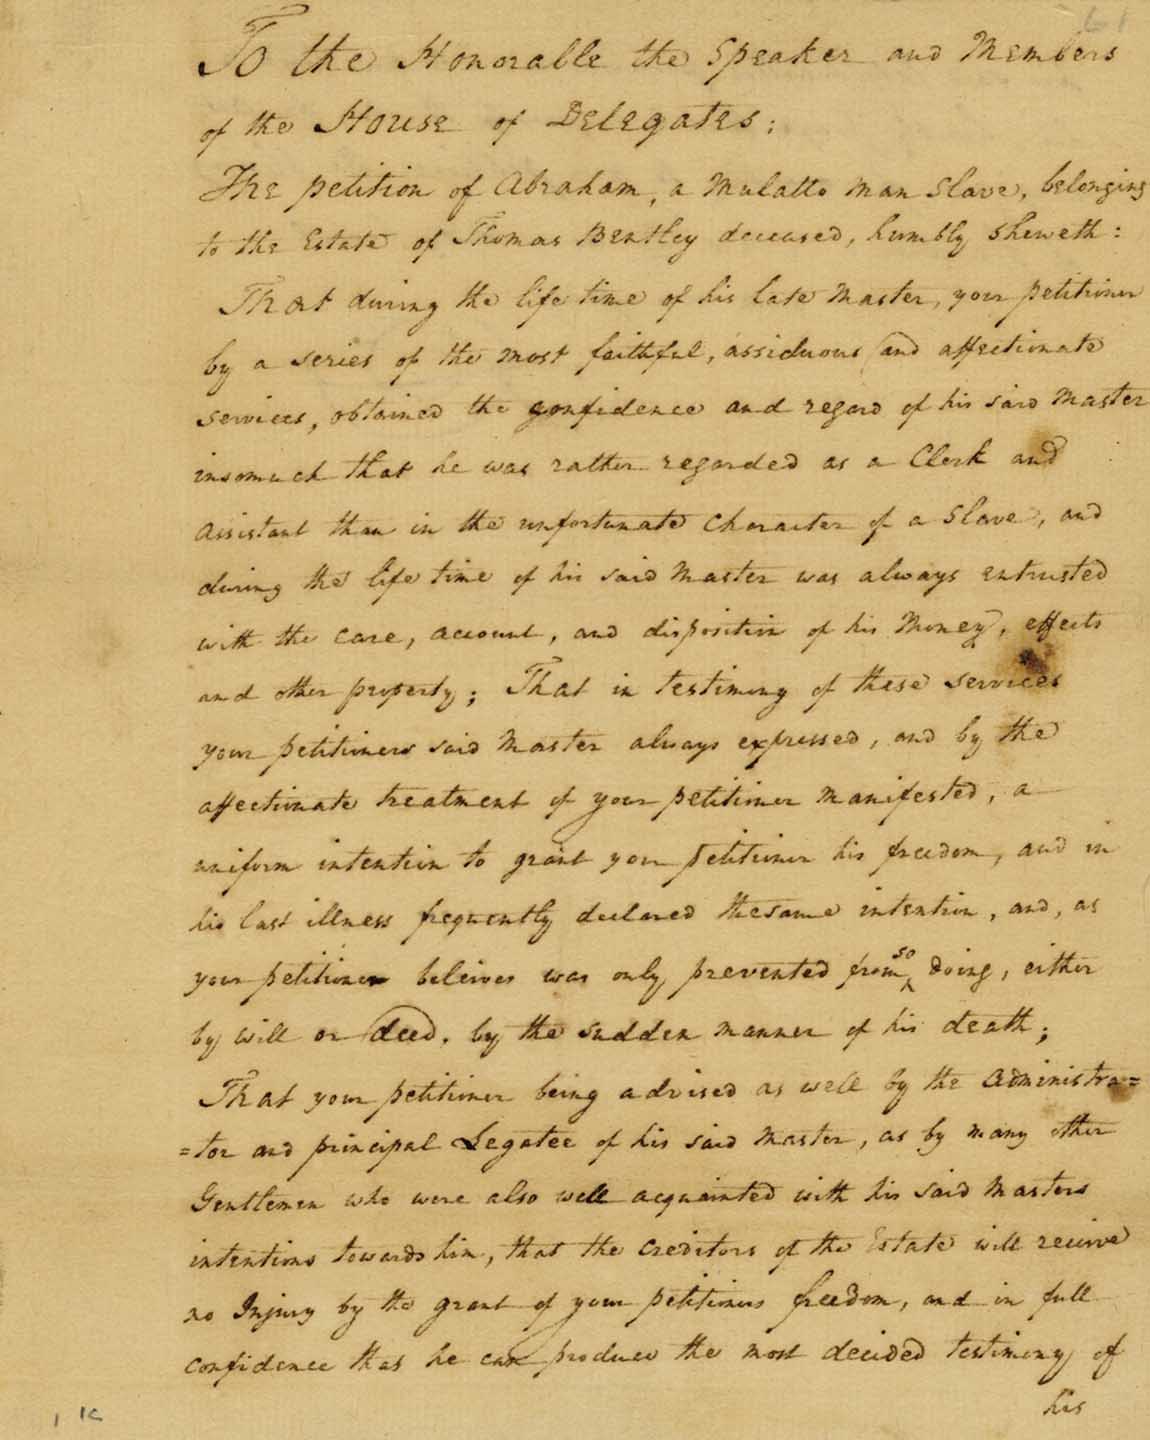 To the Honorable the Speaker and Members
of the House of Delegates;
The petition of Abraham, a Mulatto man Slave, belonging
to the Estate of Thomas Bentley deceased, humbly sheweth:
That during the life time of his late Master, your petitioner
by a series of the most faithful, assiduous and affectionate
services, obtained the confidence and regard of his said Master
insomuch that he was rather regarded as a Clerk and
assistant than in the unfortunate character of a Slave, and
during the life time of his said Master was always entrusted
with the care, account, and disposition of his Money, effects
and other property; That in testimony of these services
your petitioners said Master always expressed, and by the
affectionate treatment of your petitioner manifested, a
uniform intention to grant your petitioner his freedom, and in
his last illness frequently declared thesame intention, and, as
your petitioner beleives was only prevented from so doing, either
by will or deed, by the sudden manner of his death;
That your petitioner being advised as well by the Administra=
=tor and principal Legatee of his said Master, as by many other
Gentlemen who were also well acquainted with his said Masters
intentions towards him, that the Creditors of the Estate will receive
no Injury by the grant of your petitioners freedom, and in full
confidence that he can produce the most decided testimony of
his